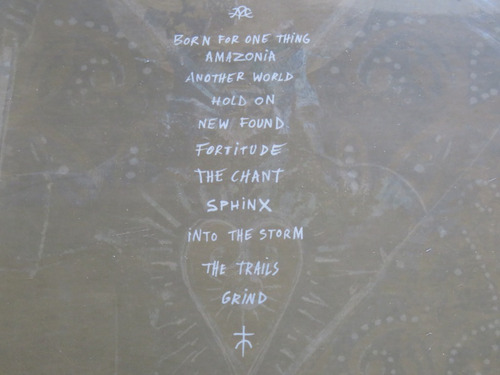 BORN FOR ONE THING
AMAZONiA
ANOTHER WORLD
HOLD ON
NEW FOUND
FORTITUDE
THE CHANT
SPHiNX
iNTO THE STORM
THE TRAiLS
GRiND